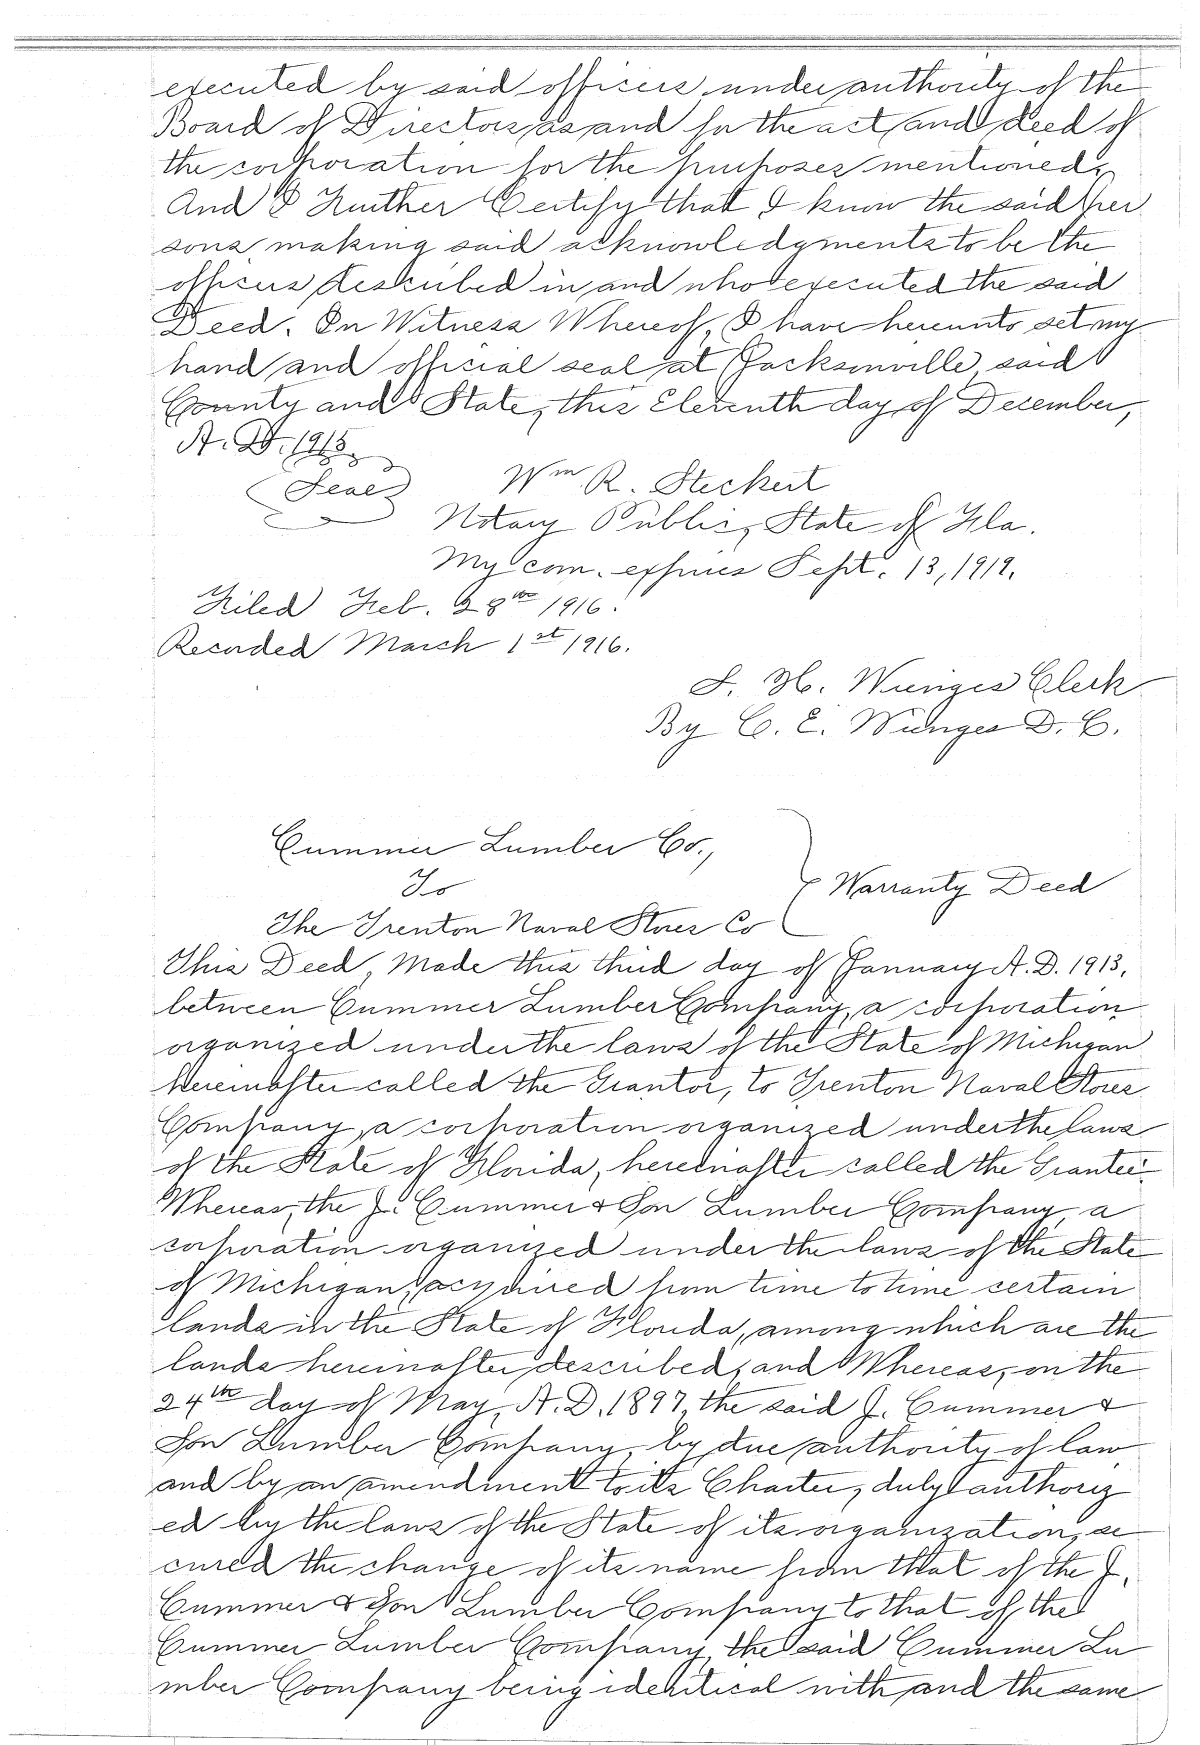 executed by said officers under authority of the
Board of Directors, as and for the act and deed of
the corporation for the purposes mentioned.
And I Further Certify that I know the said per
sons making said acknowledgments to be the
officers described in and who executed the said
Deed. In Witness Whereof, I have hereunto set my
hand and official seal at Jacksonville, said
County and State, this Eleventh day of December,
A. D. 1915.
Seal
Wm R. Steckert
Notary Public, State of Fla.
My com. expires Sept. 13, 1919.
Filed Feb. 28th 1916.
Recorded March 1st 1916.
S. H. Wienges Clerk
By C. E. Wienges D. C.
Cummer Lumber Co.,
To
Warranty Deed
The Trenton Naval Stores Co
This Deed, Made this third day of January A. D. 1913,
between Cummer Lumber Company, a corporation
organized under the laws of the State of Michigan
hereinafter called the Grantor, to Trenton Naval Stores
Company, a corporation organized under the laws
of the State of Florida, hereinafter called the Grantee.
Whereas, the J. Cummer & Son Lumber Company, a
corporation organized under the laws of the State
of Michigan, acquired from time to time certain
lands in the State of Florida, among which are the
lands hereinafter described, and Whereas, on the
24th day of May, A. D. 1897, the said J. Cummer &
Son Lumber Company, by due authority of law
and by an amendment to its Charter, duly authoriz
ed by the laws of the State of its organization, se
cured the change of its name from that of the J.
Cummer & Son Lumber Company to that of the
Cummer Lumber Company, the said Cummer Lu
mber Company being identical with and the same